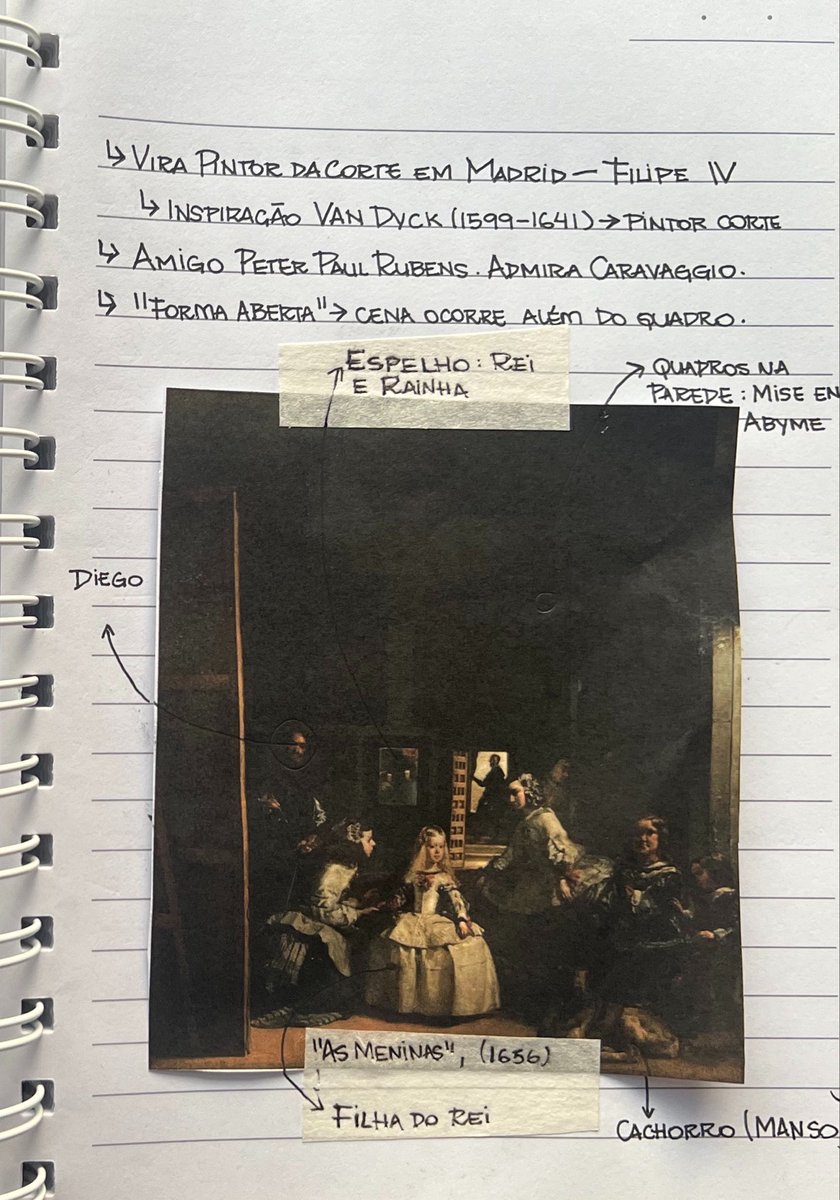 ↳ VIRA PINTOR DA CORTE EM MADRID — FILIPE IV
↳ INSPIRAÇÃO VAN DYCK (1599-1641) → PINTOR CORTE
↳ AMIGO PETER PAUL RUBENS. ADMIRA CARAVAGGIO.
↳ "FORMA ABERTA" → CENA OCORRE ALÉM DO QUADRO.
ESPELHO: REI
E RAINHA
QUADROS NA
PAREDE: MISE EN
ABYME
DIEGO
"AS MENINAS", (1656)
FILHA DO REI
CACHORRO (MANSO